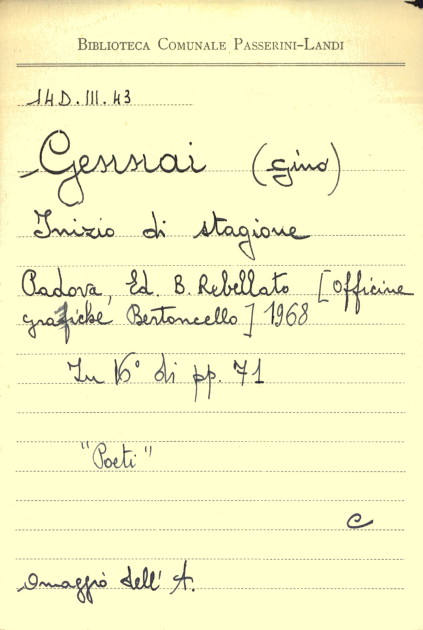 BIBLIOTECA COMUNALE PASSERINI-LANDI
14D.III.43
Gennai (Gino)
Inizio di stagione
Padova, Ed. B. Rebellato [Officine
grafiche Bertoncello] 1968
In 16° di pp. 71
"Poeti"
C
Omaggio dell'A.